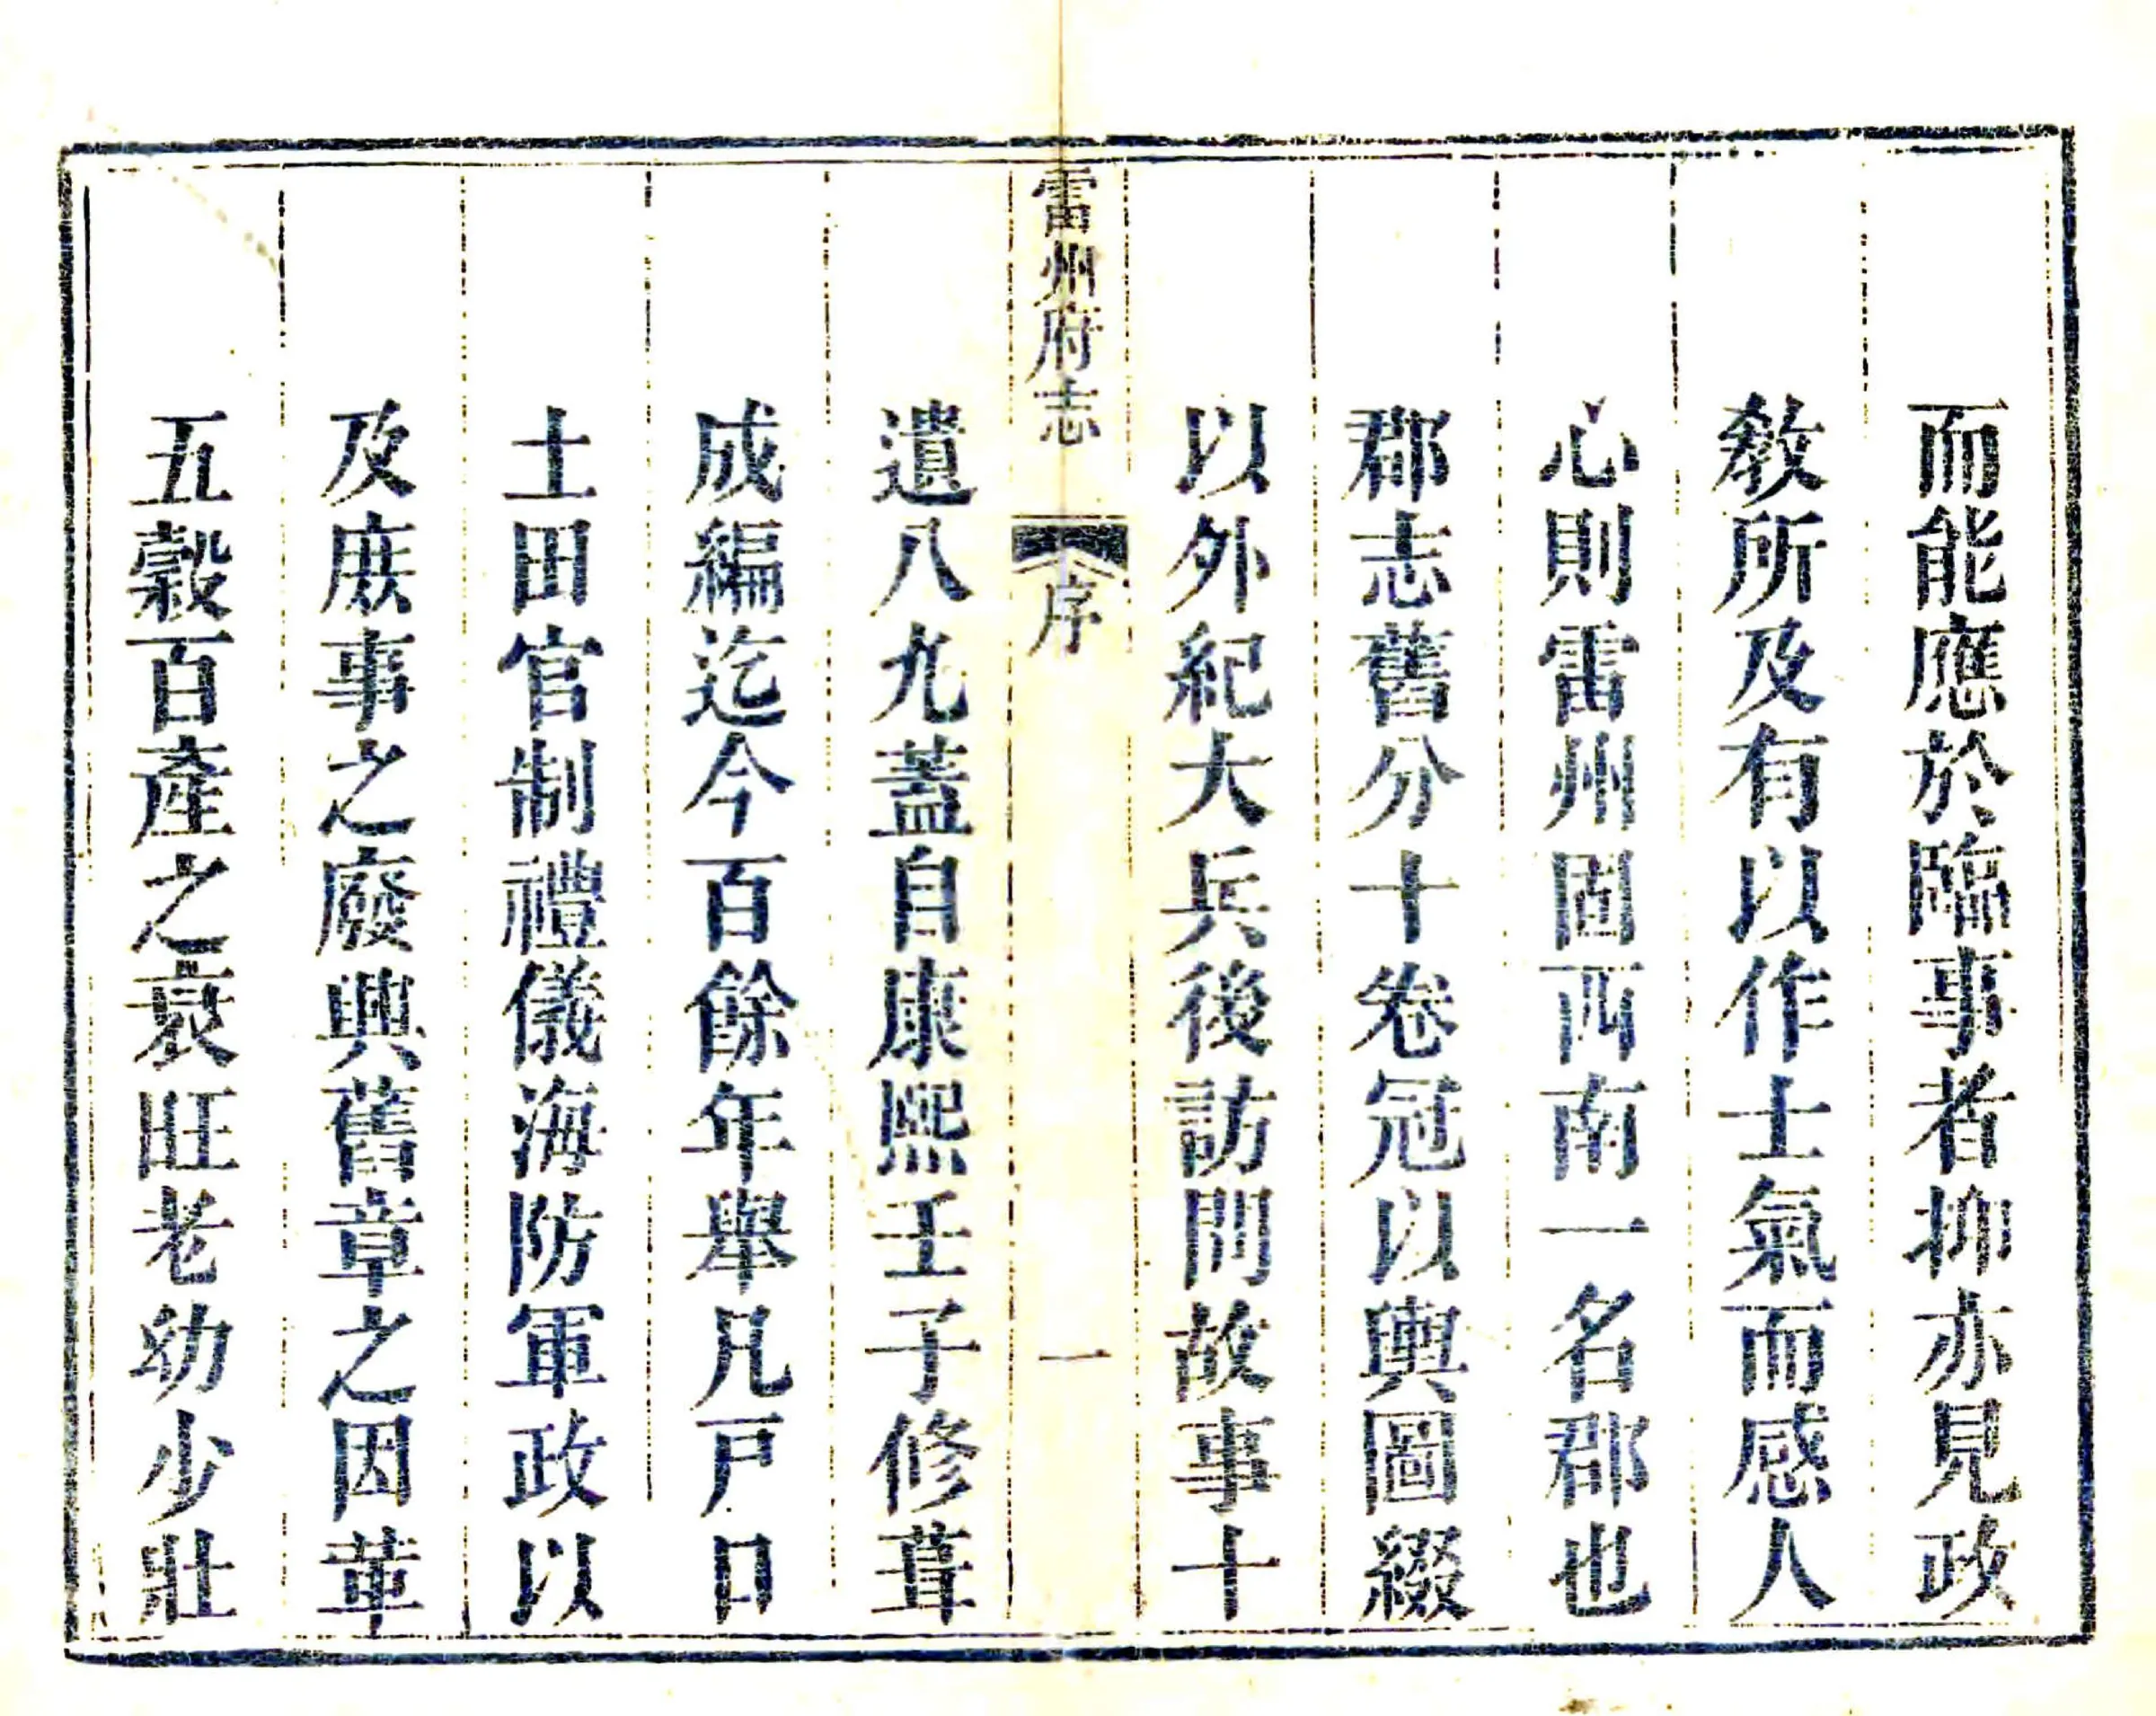 而能應於臨事者抑亦見政
敎所及有以作士氣而感人
心則雷州固西南一名郡也
郡志舊分十卷冠以輿圖綴
以外紀大兵後訪問故事十
雷州府志 序 一
遺八九蓋自康熙壬子修葺
成編迄今百餘年舉凡戸口
土田官制禮儀海防軍政以
及庻事之廢興舊章之因革
五穀百產之衰旺老幼少壯